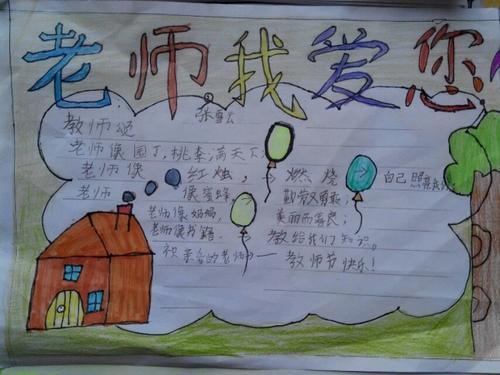 老师我爱您
教师颂
张雪云
老师像园丁,桃李满天下;
老师像红烛,燃烧自己照亮我们
老师像蜜蜂,勤劳勇敢;
老师像妈妈,美丽而善良;
老师像书籍,教给我们知识。
祝亲爱的老师——教师节快乐!